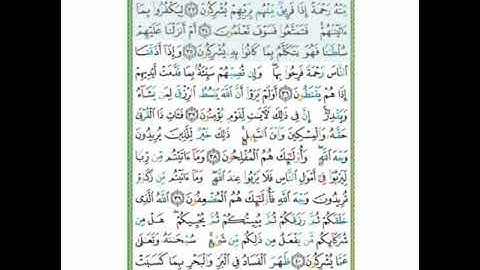 مِّنْهُ رَحْمَةً إِذَا فَرِيقٌ مِّنْهُم بِرَبِّهِمْ يُشْرِكُونَ ٣٣ لِيَكْفُرُوا بِمَا
ءَاتَيْنَٰهُمْ ۚ فَتَمَتَّعُوا فَسَوْفَ تَعْلَمُونَ ٣٤ أَمْ أَنزَلْنَا عَلَيْهِمْ
سُلْطَٰنًا فَهُوَ يَتَكَلَّمُ بِمَا كَانُوا بِهِۦ يُشْرِكُونَ ٣٥ وَإِذَا أَذَقْنَا
النَّاسَ رَحْمَةً فَرِحُوا بِهَا ۖ وَإِن تُصِبْهُمْ سَيِّئَةٌ بِمَا قَدَّمَتْ أَيْدِيهِمْ
إِذَا هُمْ يَقْنَطُونَ ٣٦ أَوَلَمْ يَرَوْا أَنَّ اللَّهَ يَبْسُطُ الرِّزْقَ لِمَن يَشَاءُ
وَيَقْدِرُ ۚ إِنَّ فِي ذَٰلِكَ لَءَايَٰتٍ لِّقَوْمٍ يُؤْمِنُونَ ٣٧ فَـَٔاتِ ذَا الْقُرْبَىٰ
حَقَّهُۥ وَالْمِسْكِينَ وَابْنَ السَّبِيلِ ۚ ذَٰلِكَ خَيْرٌ لِّلَّذِينَ يُرِيدُونَ
وَجْهَ اللَّهِ ۖ وَأُولَٰئِكَ هُمُ الْمُفْلِحُونَ ٣٨ وَمَا ءَاتَيْتُم مِّن رِّبًا
لِّيَرْبُوَا فِي أَمْوَٰلِ النَّاسِ فَلَا يَرْبُوا عِندَ اللَّهِ ۖ وَمَا ءَاتَيْتُم مِّن زَكَوٰةٍ
تُرِيدُونَ وَجْهَ اللَّهِ فَأُولَٰئِكَ هُمُ الْمُضْعِفُونَ ٣٩ اللَّهُ الَّذِي
خَلَقَكُمْ ثُمَّ رَزَقَكُمْ ثُمَّ يُمِيتُكُمْ ثُمَّ يُحْيِيكُمْ ۖ هَلْ مِن
شُرَكَائِكُم مَّن يَفْعَلُ مِن ذَٰلِكُم مِّن شَيْءٍ ۚ سُبْحَٰنَهُۥ وَتَعَٰلَىٰ
عَمَّا يُشْرِكُونَ ٤٠ ظَهَرَ الْفَسَادُ فِي الْبَرِّ وَالْبَحْرِ بِمَا كَسَبَتْ